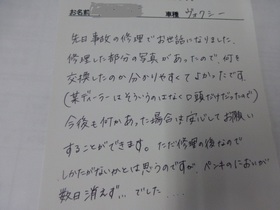 お名前 車種 ヴォクシー
先日事故の修理でお世話になりました。
修理した部分の写真があったので、何を
交換したのか分かりやすくてよかったです
(某ディーラーはそういうのはなく口頭だけだったので)
今後も何かあった場合は安心してお願い
することができます。ただ修理の後なので
しかたがないかとは思うのですが、ペンキのにおいが
数日消えず…でした……